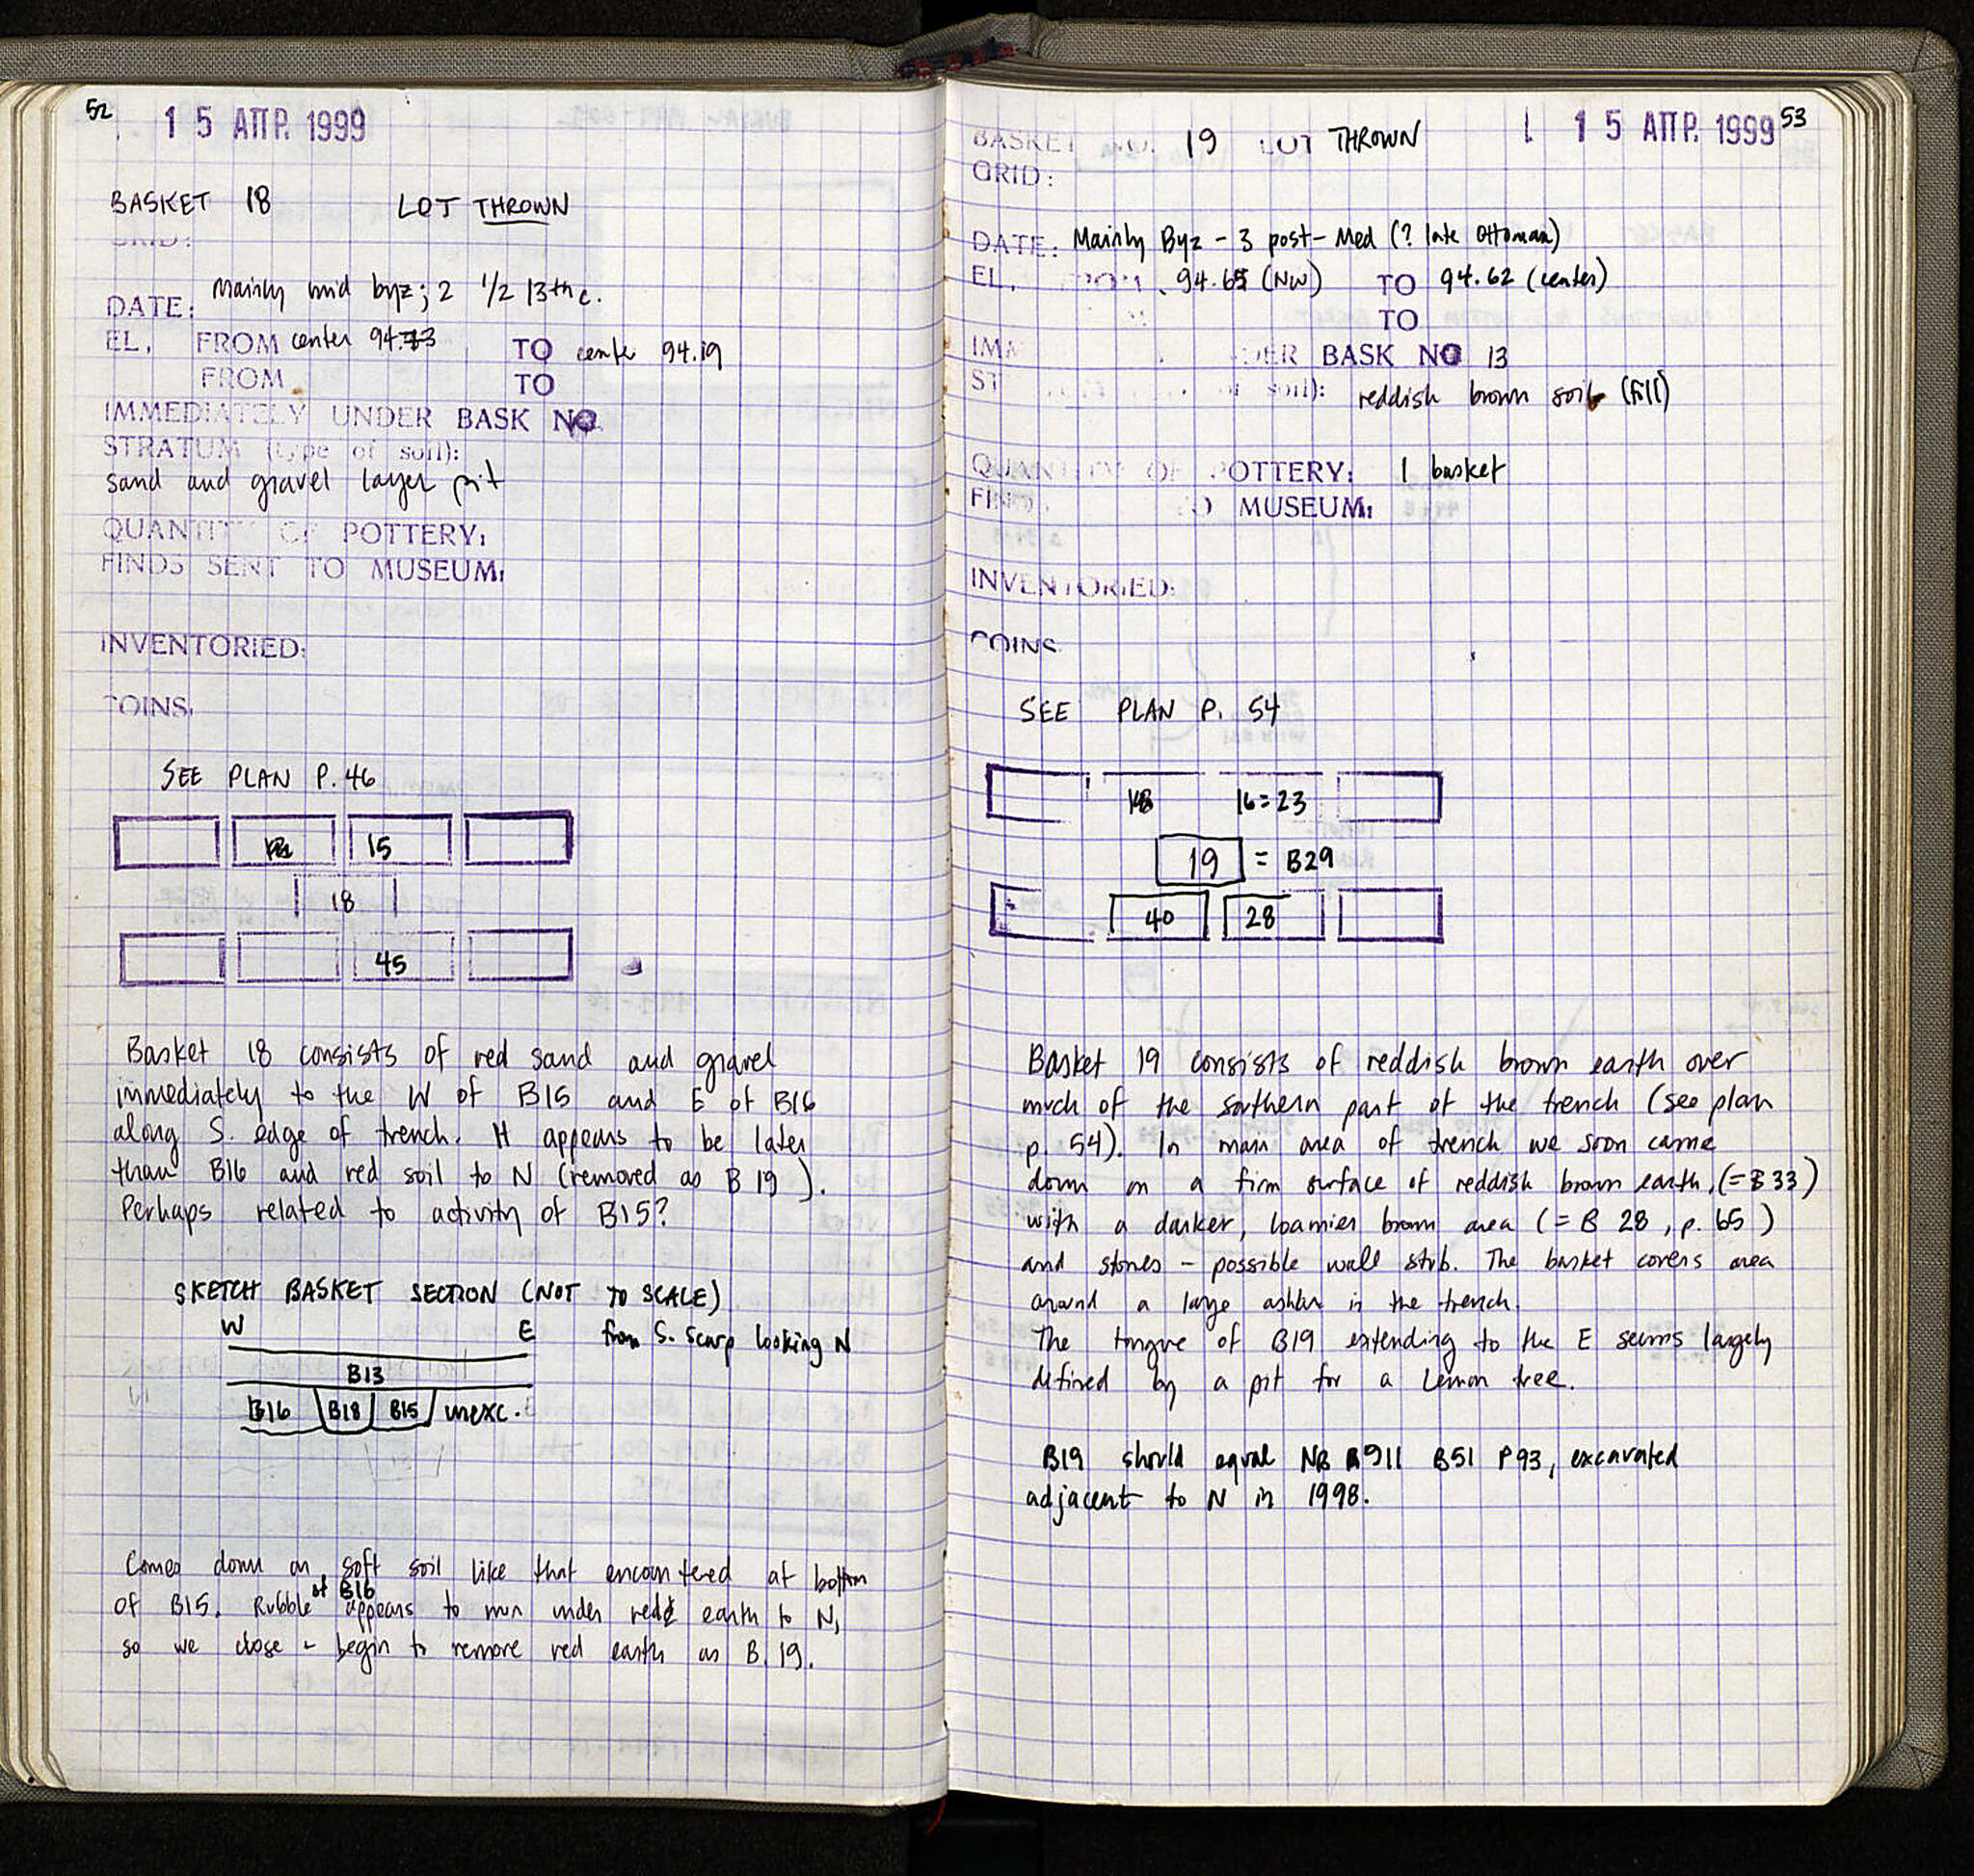 52
15 ΑΠΡ. 1999
BASKET 18 LOT THROWN
GRID:
Mainly mid byz; 2 1/2 13th c.
DATE:
EL. FROM center 94.73 TO center 94.19
FROM TO
IMMEDIATELY UNDER BASK NO
STRATUM (type of soil):
sand and gravel layer pit
QUANTITY OF POTTERY:
FINDS SENT TO MUSEUM:
INVENTORIED:
COINS:
SEE PLAN P. 46
15
18
45
Basket 18 consists of red sand and gravel
immediately to the W of B15 and E of B16
along S. edge of trench. It appears to be later
than B16 and red soil to N (removed as B 19).
Perhaps related to activity of B15?
SKETCH BASKET SECTION (NOT TO SCALE)
W E from S. scarp looking N
B13
B16 B18 B15 unexc.
Comes down on soft soil like that encountered at bottom
of B15. Rubble of B16 appears to run under red earth to N,
so we close - begin to remove red earth as B. 19.
53
15 ΑΠΡ. 1999
BASKET NO. 19 LOT THROWN
GRID:
DATE: Mainly Byz - 3 post-Med (? late Ottoman)
EL. FROM 94.65 (NW) TO 94.62 (center)
TO
IMM UNDER BASK NO 13
ST of soil): reddish brown soil (fill)
QUANTITY OF POTTERY: 1 basket
FIND TO MUSEUM:
INVENTORIED:
COINS
SEE PLAN P. 54
16=23
19 = B29
40 28
Basket 19 consists of reddish brown earth over
much of the southern part of the trench (see plan
p. 54). In main area of trench we soon came
down on a firm surface of reddish brown earth, (=B 33)
with a darker, loamier brown area (= B 28, p. 65)
and stones - possible wall stub. The basket covers area
around a large ashlar in the trench.
The tongue of B19 extending to the E seems largely
defined by a pit for a Lemon tree.
B19 should equal NB 911 B51 P93, excavated
adjacent to N in 1998.